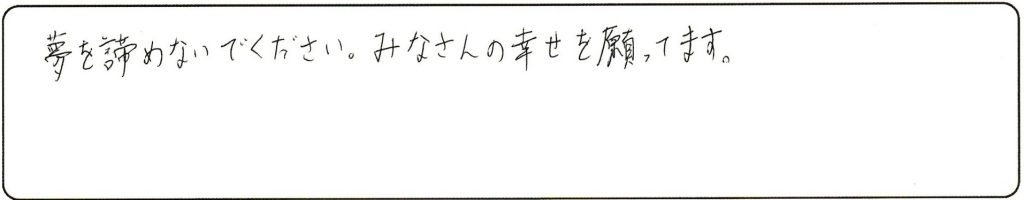 夢を諦めないでください。みなさんの幸せを願ってます。